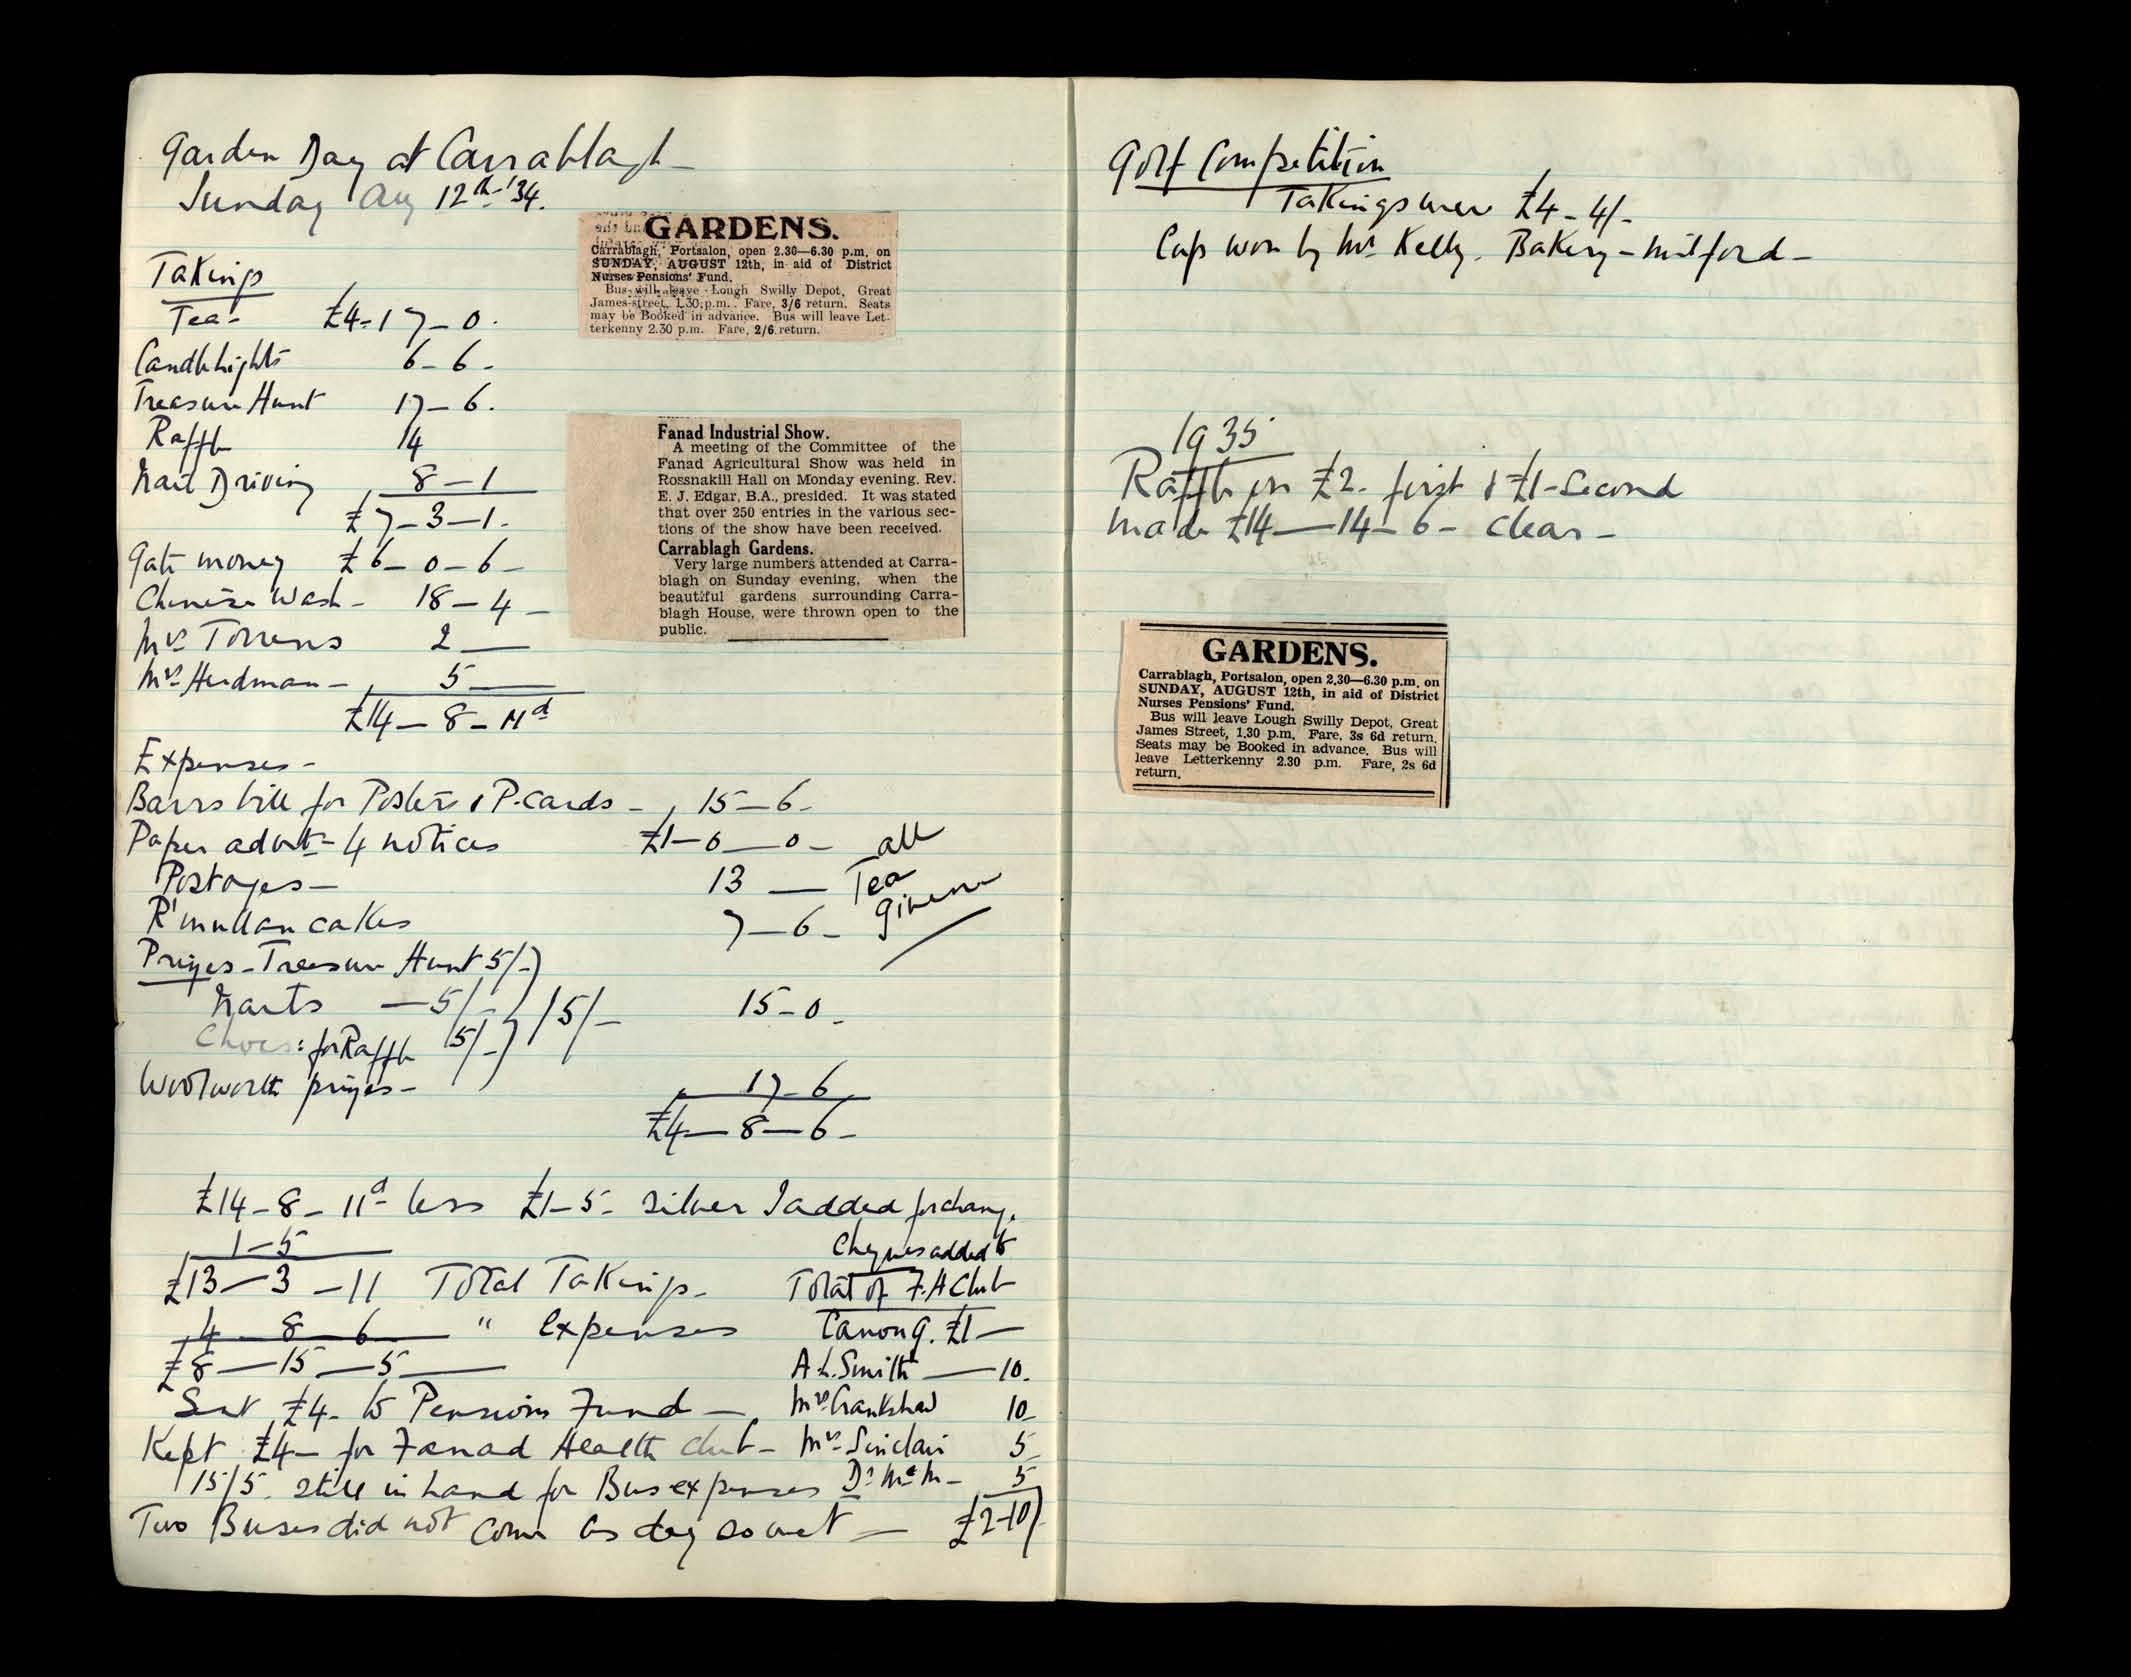 Garden Day at Carrablagh
Sunday Aug 12th '34.
Takings
Tea - £4-17-0.
Candlelights 6-6-
Treasure Hunt 17-6.
Raffle 14
Nail Driving 8-1
£7-3-1.
Gate money £6-0-6-
Chinese Wash- 18-4-
Mrs Torrens 2—
Mrs Herdman- 5—
£14-8-11d
Expenses-
Barrs bill for Posters & P.cards- 15-6-
Paper advt- 4 notices £1-0-0-
Postages- 13—
R'mullan cakes 7-6-
all
Tea
given
Prizes-Treasure Hunt 5/-)
Nails —5/-
15/- 15-0-
Chocs: for Raffle 5/-)
Woolworth prizes- 17-6
£4-8-6-
£14-8-11d less £1-5- silver I added for change.
1-5
£13-3-11 Total Takings-
4-8-6 " Expenses
£8-15-5
Sent £4- to Pensions Fund-
Kept £4- for Fanad Health club-
15/5. still in hand for Bus expenses
Two Buses did not come as day so wet-
Cheques added to
Total of F.H Club
Canon G. £1-
A.L. Smith — 10.
Mrs Crankshaw 10-
Mrs Sinclair 5-
Dr McM- 5
£2-10)
GARDENS.
Carrablagh, Portsalon, open 2.30—6.30 p.m. on
SUNDAY, AUGUST 12th, in aid of District
Nurses Pensions' Fund.
Bus will leave Lough Swilly Depot, Great
James-street, 1.30 p.m. Fare, 3/6 return. Seats
may be Booked in advance. Bus will leave Let-
terkenny 2.30 p.m. Fare, 2/6 return.
Fanad Industrial Show.
A meeting of the Committee of the
Fanad Agricultural Show was held in
Rossnakill Hall on Monday evening. Rev.
E. J. Edgar, B.A., presided. It was stated
that over 250 entries in the various sec-
tions of the show have been received.
Carrablagh Gardens.
Very large numbers attended at Carra-
blagh on Sunday evening, when the
beautiful gardens surrounding Carra-
blagh House, were thrown open to the
public.
Golf Competition
Takings were £4-4/-
Cup won by Mr Kelly. Bakery-Milford-
1935
Raffle for £2- first & £1-Second
made £14—14-6- clear-
GARDENS.
Carrablagh, Portsalon, open 2.30—6.30 p.m. on
SUNDAY, AUGUST 12th, in aid of District
Nurses Pensions' Fund.
Bus will leave Lough Swilly Depot, Great
James Street, 1.30 p.m. Fare, 3s 6d return.
Seats may be Booked in advance. Bus will
leave Letterkenny 2.30 p.m. Fare, 2s 6d
return.